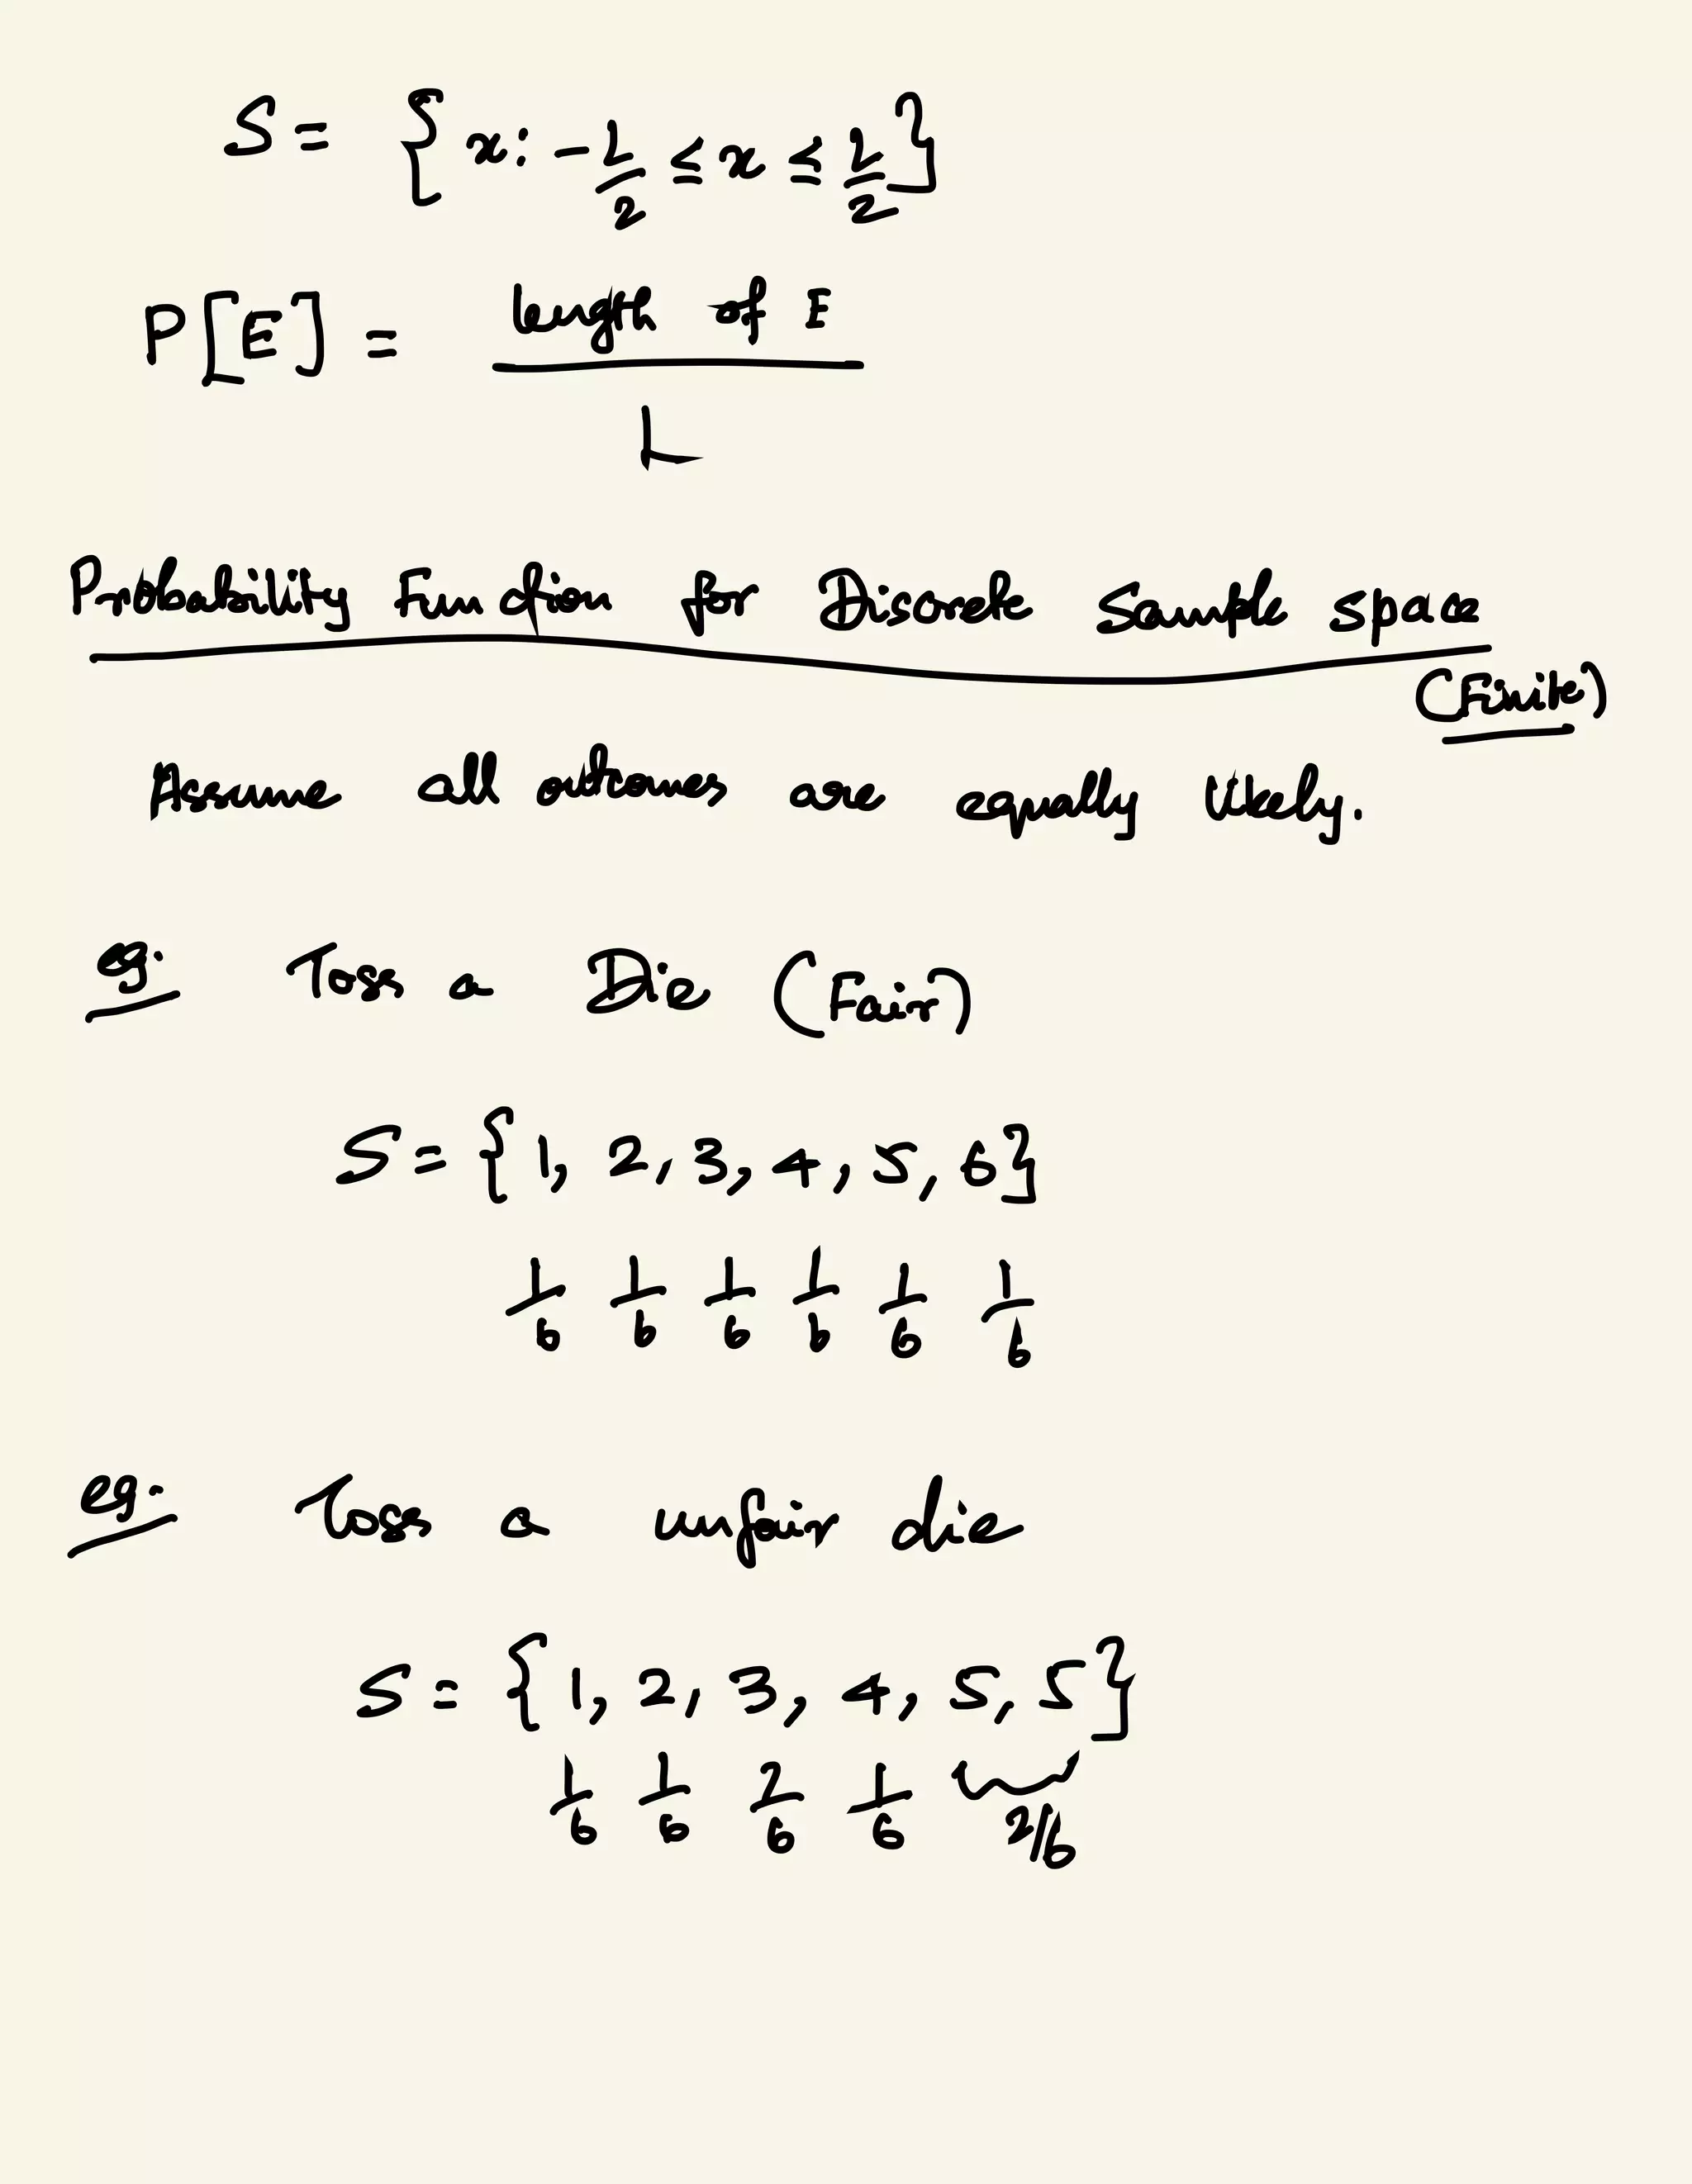 S = { x : -L/2 ≤ x ≤ L/2 }
P[E] = length of E / L
Probability Function for Discrete Sample space
(Finite)
Assume all outcomes are equally likely.
eg: Toss a Die (Fair)
S = { 1, 2, 3, 4, 5, 6 }
1/6 1/6 1/6 1/6 1/6 1/6
eg: Toss a unfair die
S = { 1, 2, 3, 4, 5, 5 }
1/6 1/6 2/6 1/6 2/6